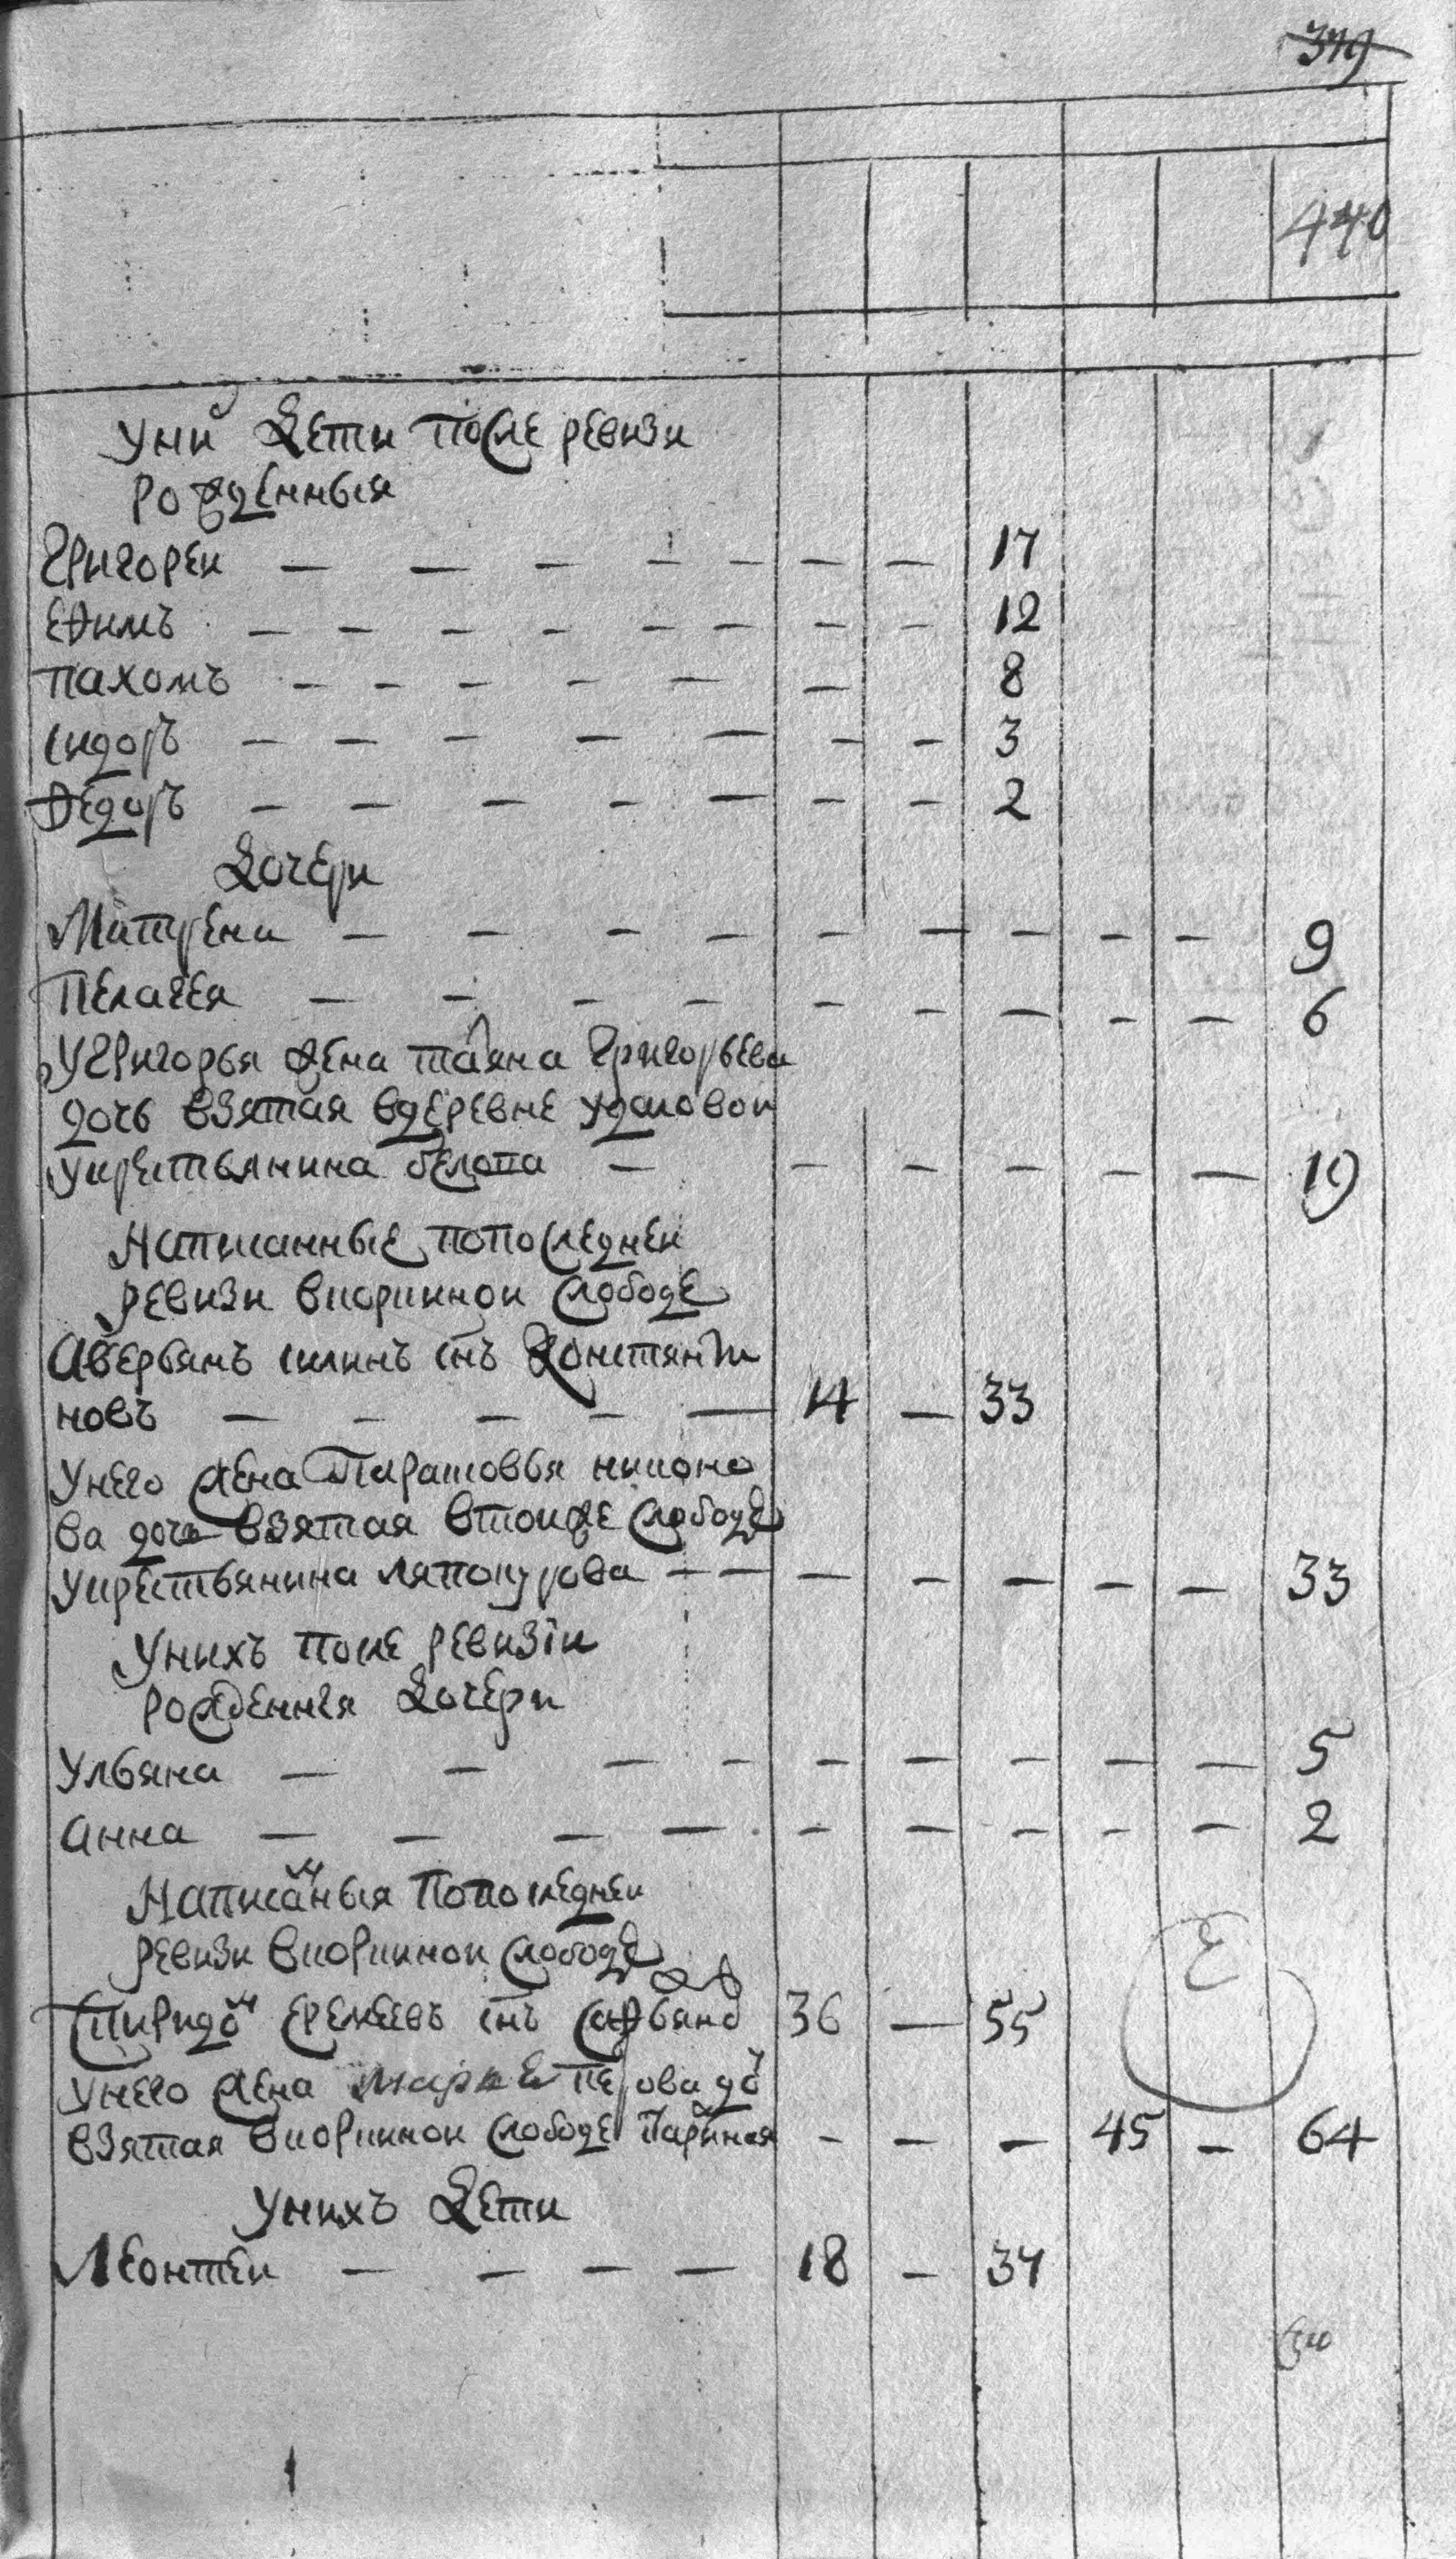 379
440
Уни Дети После ревизи
рожденныя
Григореи — — — — — — — 17
Ефимъ — — — — — — — — 12
Пахомъ — — — — — — 8
Сидоръ — — — — — — — 3
Федоръ — — — — — — — 2
Дочери
Матрена — — — — — — — — — 9
Пелагея — — — — — — — — — 6
Угригорья жена татьяна Григорьева
дочь взятая вдеревне удаловои
укрестьянина белопа — — — — — — 19
Написанные попоследнеи
ревизи вкоркинои слободе
Аверьянъ силинъ снъ Констянти
новъ — — — — — 14 — 33
Унего жена Парасковья никоно
ва дочь взятая втоиже слободе
укрестьянина ляпокурова — — — — — — — 33
Унихъ после ревизiи
рожденныя Дочери
Ульяна — — — — — — — — — 5
анна — — — — — — — — — 2
Написанныя Попоследнеи
ревизи вкоркинои слободе
Спиридонъ еремеевъ снъ 36 — 55
Унего жена дочь
взятая вкоркинои слободе — — — 45 — 64
Унихъ Дети
Леонтеи — — — — 18 — 37